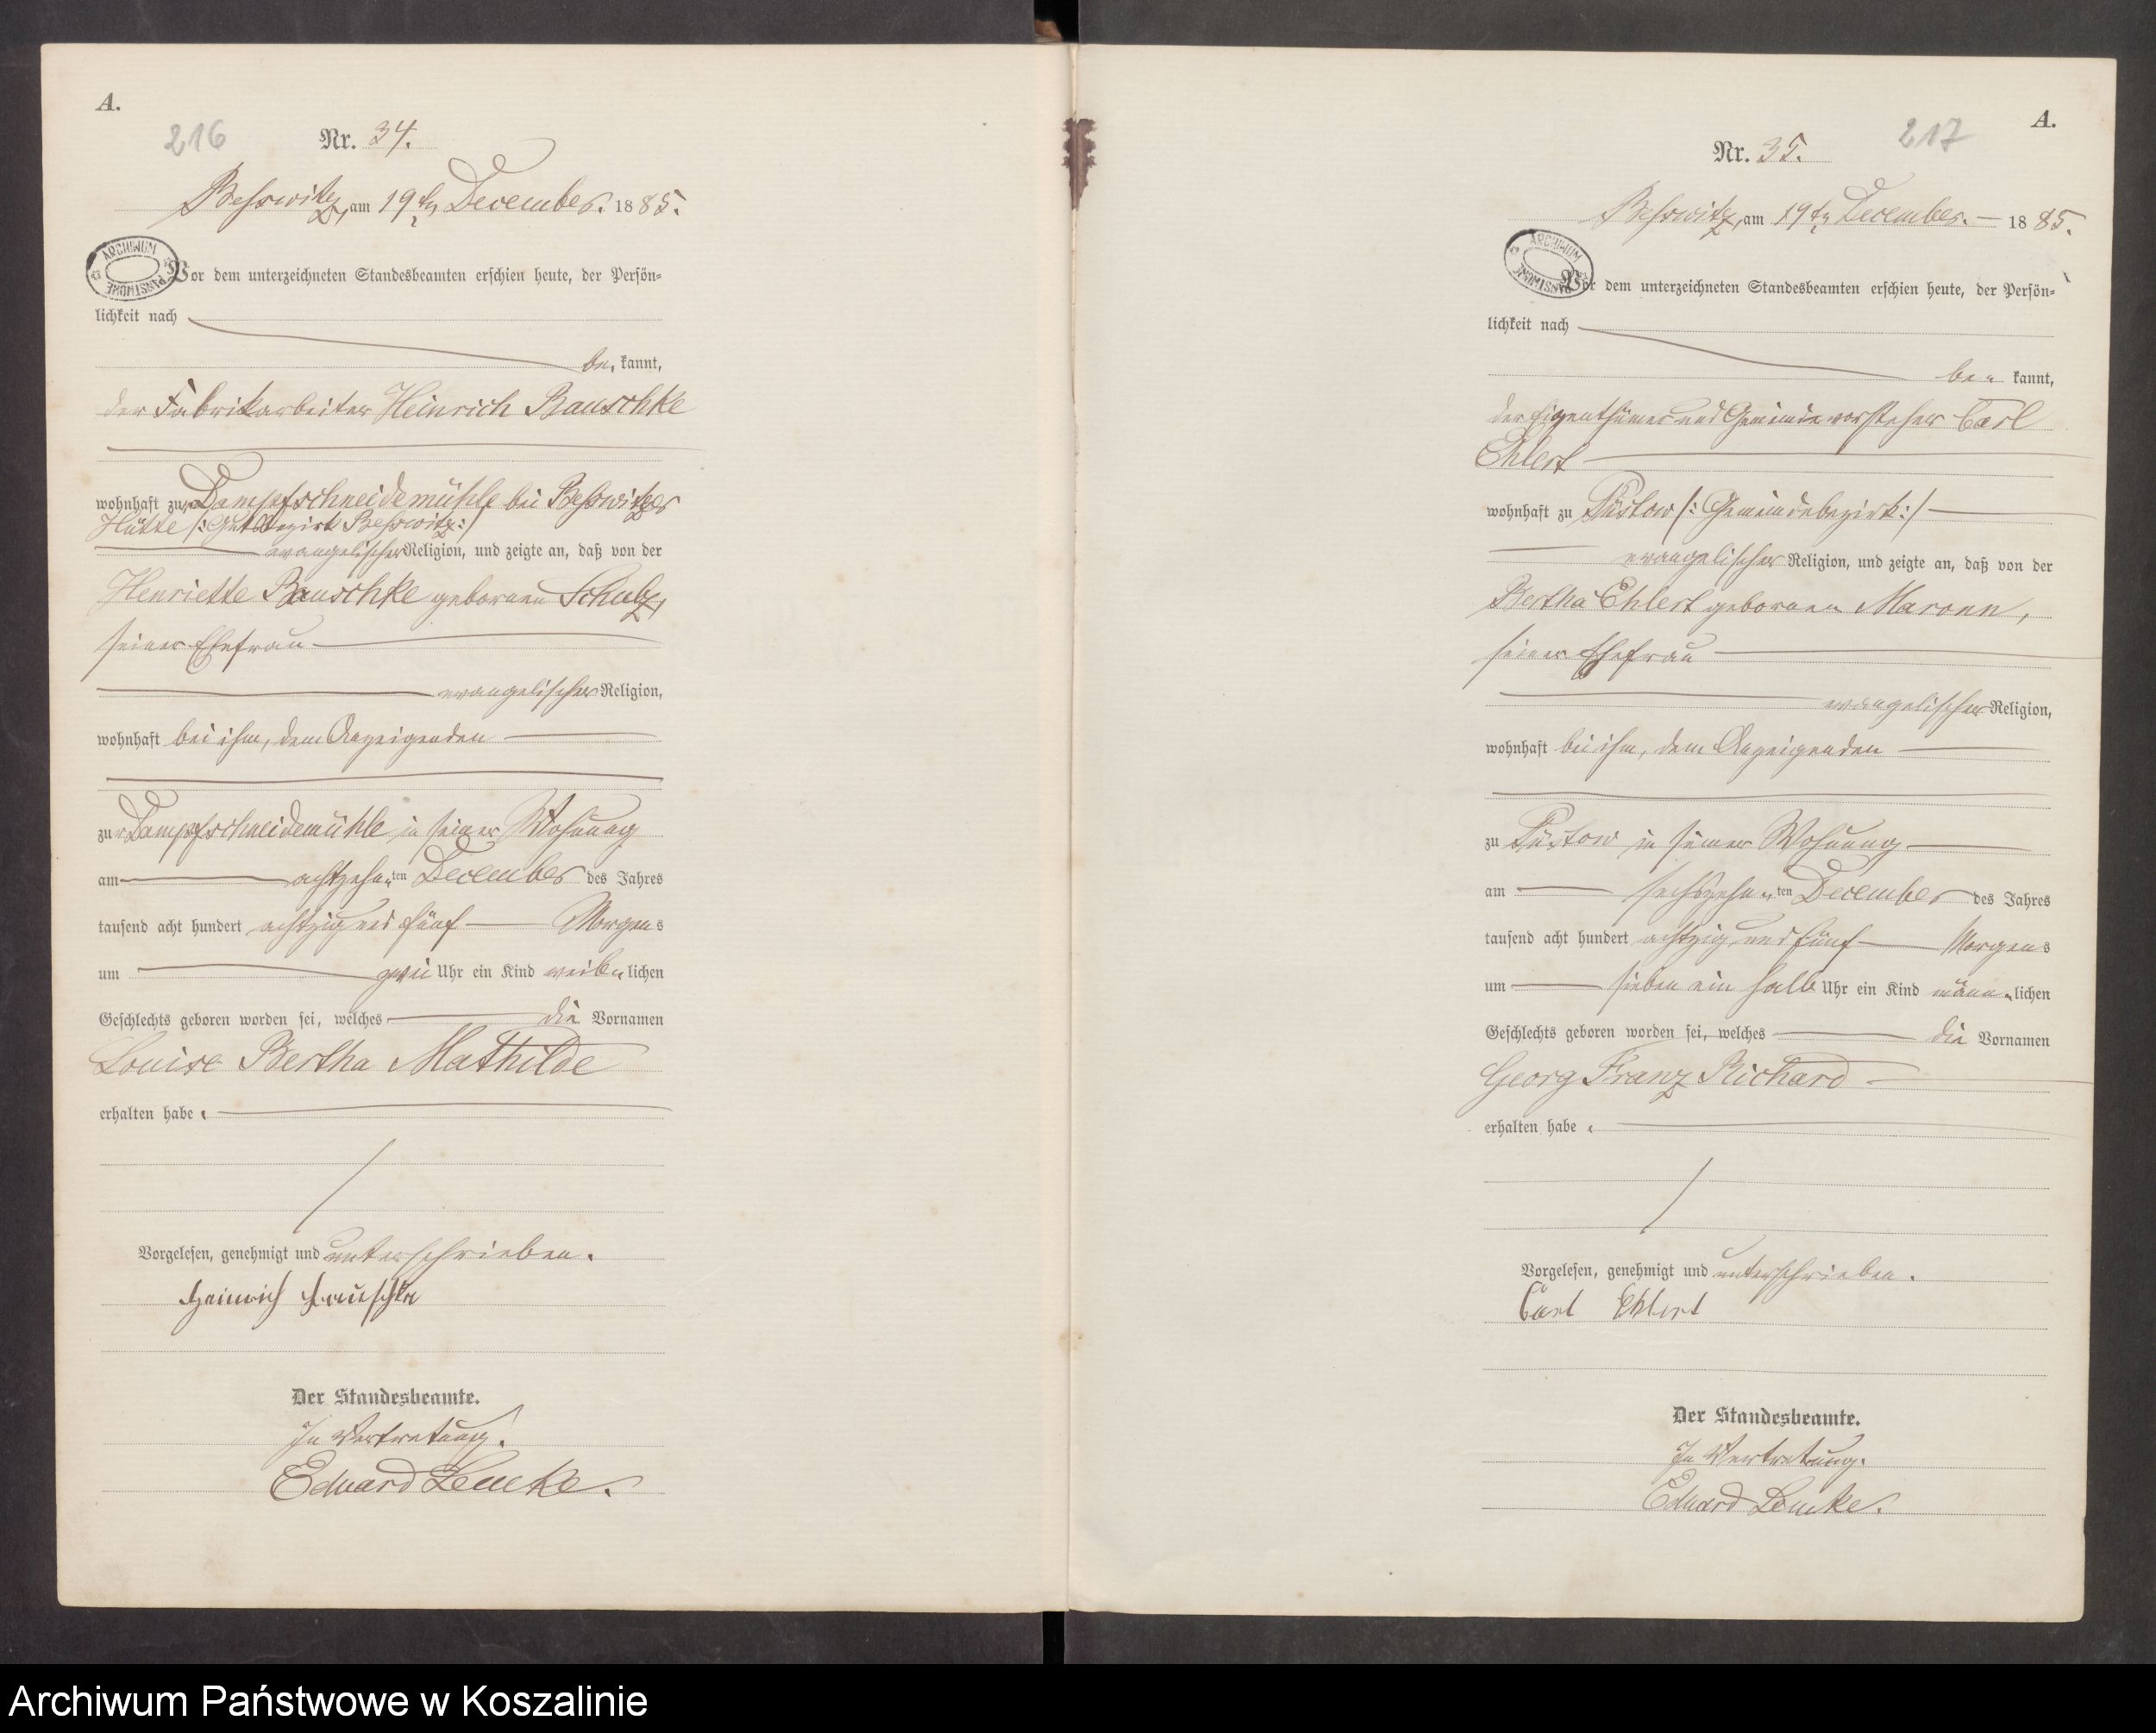 A.
216
Nr. 34.
Beßwitz, am 19ten December. 1885.
ARCHIWUM PAŃSTWOWE
Vor dem unterzeichneten Standesbeamten erschien heute, der Persön-
lichkeit nach
be- kannt,
der Fabrikarbeiter Heinrich Bauschke
wohnhaft zur Dampfschneidemühle bei Beßwitzer
Hütte /: Gutsbezirk Beßwitz :/
evangelischer Religion, und zeigte an, daß von der
Henriette Bauschke gebornen Schulz,
seiner Ehefrau
evangelischer Religion,
wohnhaft bei ihm, dem Anzeigenden
zur Dampfschneidemühle in seiner Wohnung
am achtzehn-ten December des Jahres
tausend acht hundert achtzig und fünf Morgens
um zwei Uhr ein Kind weib- lichen
Geschlechts geboren worden sei, welches die Vornamen
Louise Bertha Mathilde
erhalten habe.
Vorgelesen, genehmigt und unterschrieben.
Heinrich Bauschke
Der Standesbeamte.
In Vertretung.
Eduard Lemke.
A.
217
Nr. 35.
Beßwitz, am 19ten December. 1885.
ARCHIWUM PAŃSTWOWE
Vor dem unterzeichneten Standesbeamten erschien heute, der Persön-
lichkeit nach
be- kannt,
der Eigenthümer und Gemeindevorsteher Carl
Ehlert
wohnhaft zu Püstow /: Gemeindebezirk :/
evangelischer Religion, und zeigte an, daß von der
Bertha Ehlert gebornen Maronn,
seiner Ehefrau
evangelischer Religion,
wohnhaft bei ihm, dem Anzeigenden
zu Püstow in seiner Wohnung
am sechszehn-ten December des Jahres
tausend acht hundert achtzig und fünf Morgens
um sieben ein halb Uhr ein Kind männ-lichen
Geschlechts geboren worden sei, welches die Vornamen
Georg Franz Richard
erhalten habe.
Vorgelesen, genehmigt und unterschrieben.
Carl Ehlert
Der Standesbeamte.
In Vertretung.
Eduard Lemke.
Archiwum Państwowe w Koszalinie